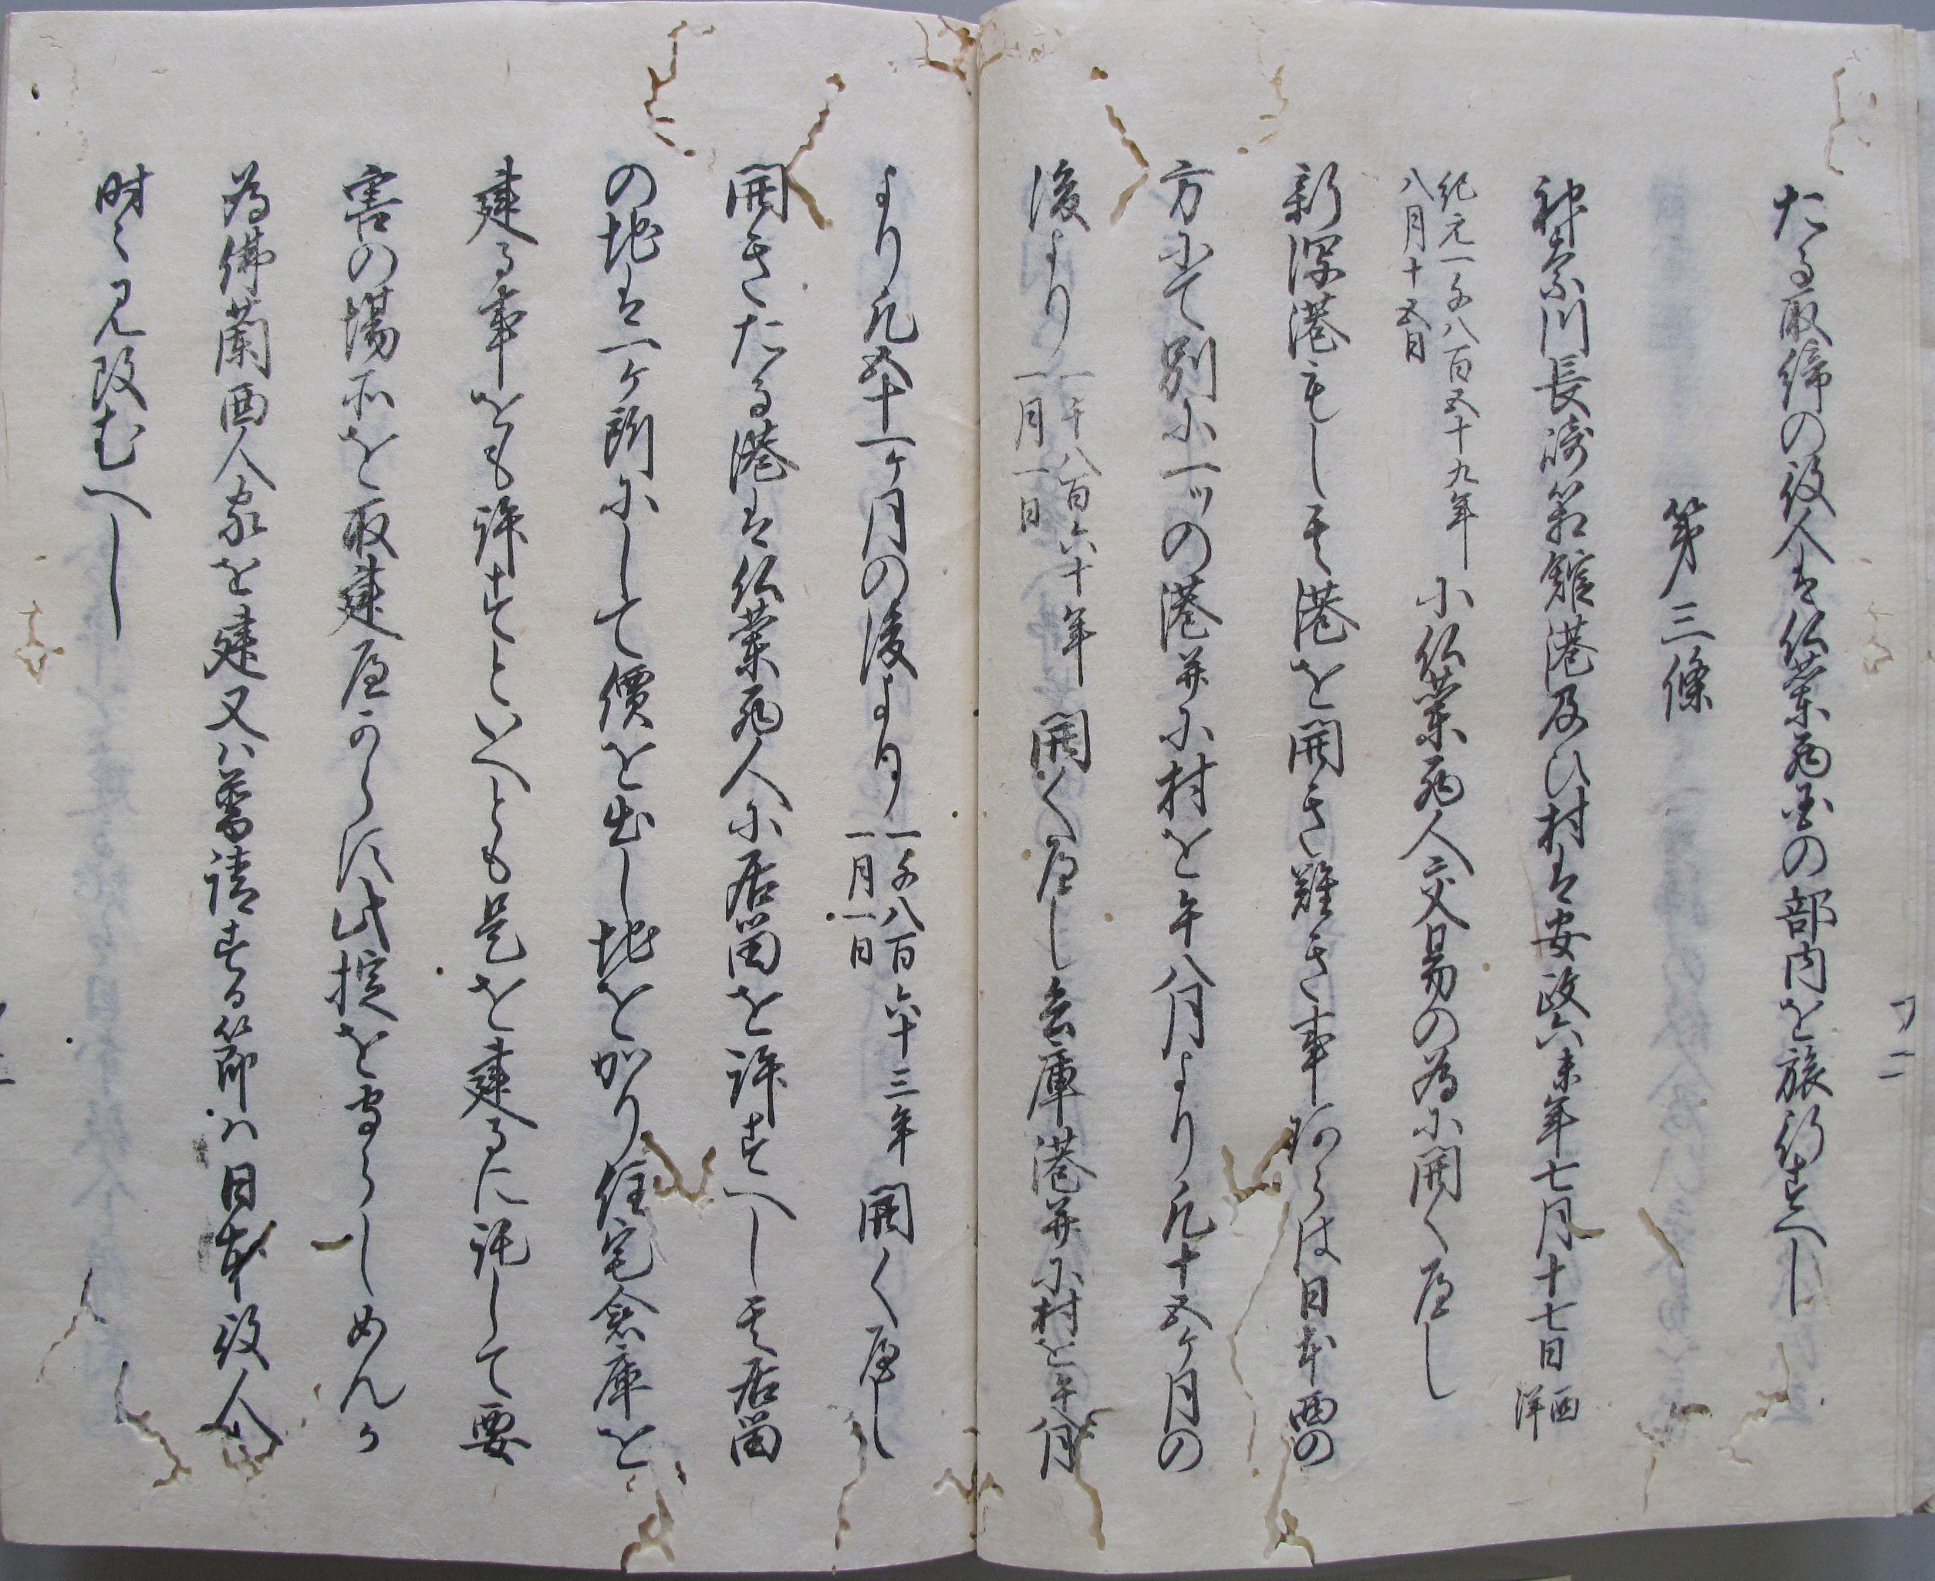 たる取締の役人は仏蘭西国の部内を旅行すへし
第三條
神奈川長崎箱館港及ひ村は安政六未年七月十七日西洋
紀元一千八百五十九年八月十五日に仏蘭西人交易の為に開くへし
新潟港もし其港を開き難き事あらは日本西の
方にて別に一ッの港并に村を午八月より凡十五ヶ月の
後より一千八百六十年一月一日開くへし兵庫港并に村を午八月
より凡五十一ヶ月の後より一千八百六十三年一月一日開くへし
開きたる港は仏蘭西人に居留を許すへし其居留
の地は一ヶ所にして價を出し地をかり住宅倉庫を
建る事をも許すといへとも是を建るに託して要
害の場所を取建へからす此掟を守らしめんか
為佛蘭西人家を建又ハ普請する節ハ日本役人
時々見改むへし